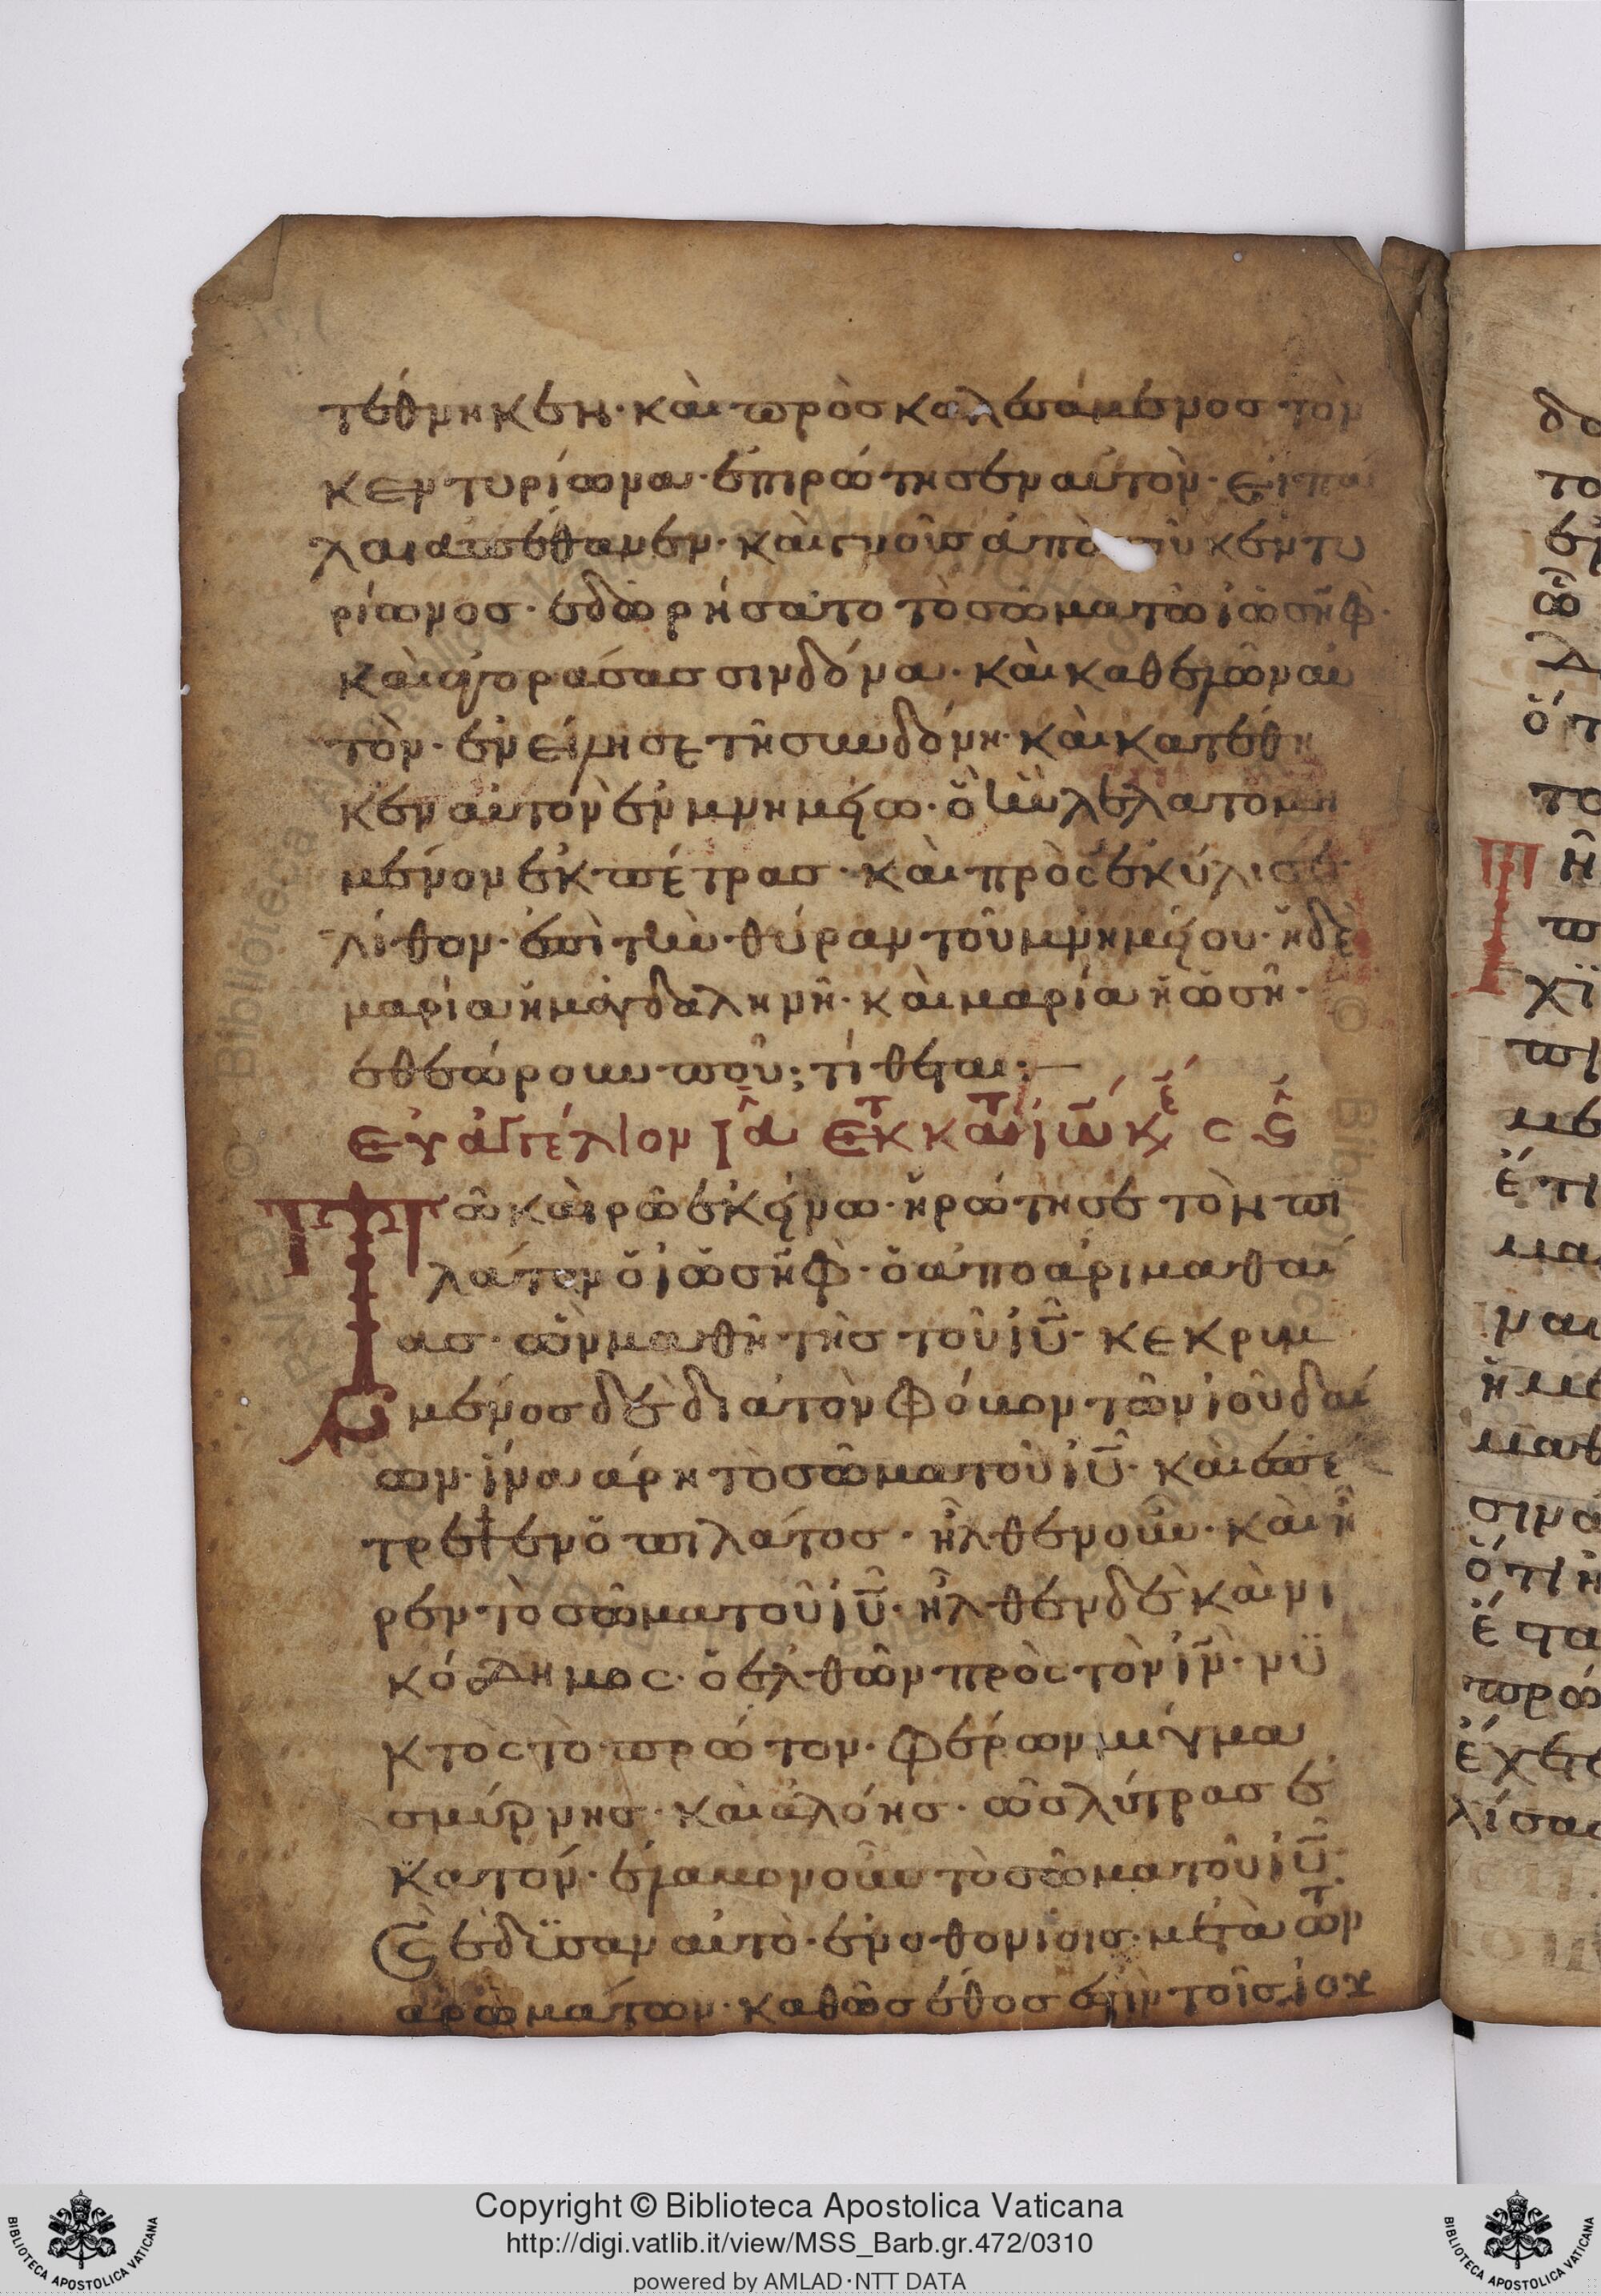 τέθνηκεν· καὶ προσκαλεσάμενος τὸν
κεντυρίωνα· ἐπιρώτησεν αὐτὸν· εἰ πά
λαι ἀπέθανεν· καὶ γνοῦσ ἀπὸ τοῦ κεντυ
ρίωνος· εδωρήσατο τὸ σῶμα τῶ ἰωσὴφ·
καὶ ἀγορασασ σινδόνα· καὶ καθελῶν αυ
τὸν· ἐνείλησε τῆ σινδόνη· καὶ κατέθη
κεν αὐτὸν ἐν μνημείω· ὃ ἦν λελατομη
μένον ἐκ πέτρασ· καὶ πρὸσεκύλισε
λίθον· ἐπὶ τὴν θύραν τοῦ μνημείου· ἡ δὲ
μαρία ἡ μαγδαληνῆ· καὶ μαρία ἡ ὡσῆ·
εθεώρουν ποῦ; τίθεται:—
Εὐαγγέλιον ια Εκ κατ ἰω κξ
Τῶ καιρῶ ἐκείνω· ἠρώτησε τὸν πι
λάτον ὁ ἰωσὴφ· ὁ ἀπο ἀριμαθαί
ασ· ὢν μαθητὴσ τοῦ ἰῦ· κεκριμ
μένοσ δὲ διὰ τὸν φόυον τῶν ἰουδαί
ων· ἵνα άρη τὸ σῶμα τοῦ ἰῦ· καὶ ἐπέ
τρεψεν ὁ πιλάτοσ· ἦλθεν οὖν· καὶ ἦ
ρεν τὸ σῶμα τοῦ ἰῦ· ἦλθεν δὲ καὶ νι
κόδημος· ὁ ἐλθῶν πρὸς τὸν ἰν· νϋ
κτὸς τὸ πρώτον· φέρων μίγμα
σμύρνησ· καὶ ἀλόησ· ὡσ λύτρασ ἑ
κατόν· ἔλαυον οὖν τὸ σῶμα τοῦ ἰῦ·
ϛ ἐδϊσαν αὐτὸ· ἐν ὀθονίοισ· μετὰ τῶν
ἀρωμάτων· καθῶσ ἔθοσ ἐστὶν τοῖσ ἰου
Copyright © Biblioteca Apostolica Vaticana
http://digi.vatlib.it/view/MSS_Barb.gr.472/0310
powered by AMLAD·NTT DATA
BIBLIOTECA APOSTOLICA VATICANA
BIBLIOTECA APOSTOLICA VATICANA